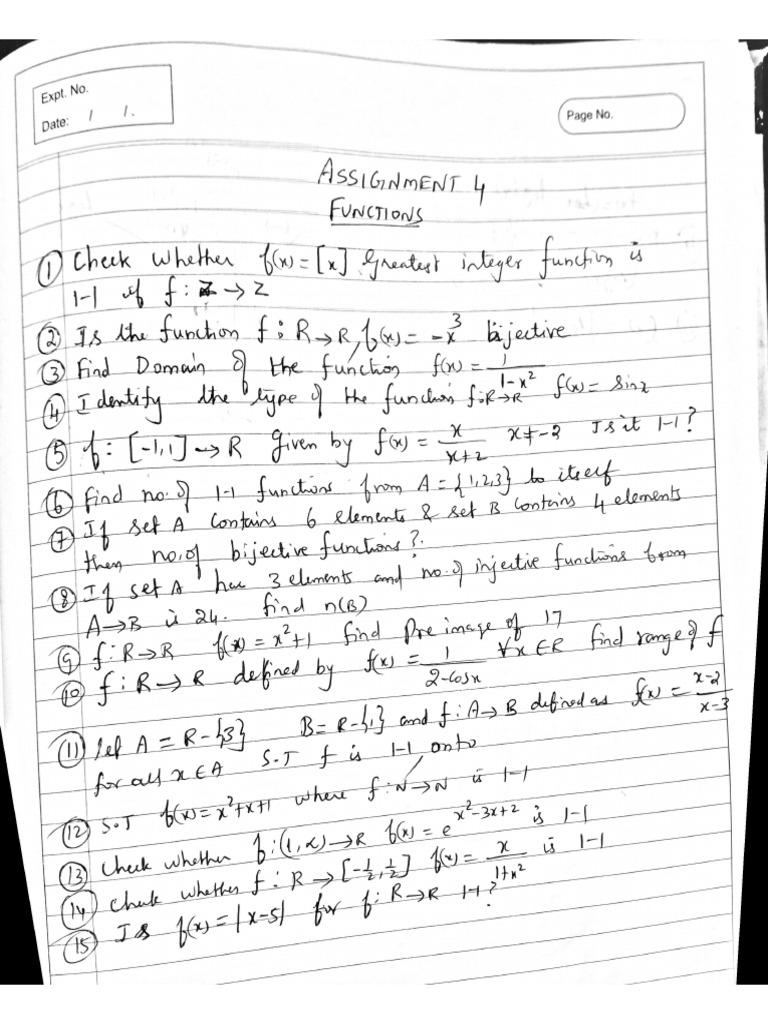 Expt. No.
Date: / /.
Page No.
ASSIGNMENT 4
FUNCTIONS
① Check whether f(x) = [x] Greatest integer function is
1-1 if f: Z → Z
② Is the function f: R → R, f(x) = -x³ bijective
③ Find Domain of the function f(x) = 1/(1-x²)
④ Identify the type of the function f: R→R f(x) = sinx
⑤ f: [-1,1] → R given by f(x) = x/(x+2) x ≠ -2 Is it 1-1?
⑥ Find no. of 1-1 functions from A = {1,2,3} to itself
⑦ If set A contains 6 elements & set B contains 4 elements
then no. of bijective functions?
⑧ If set A has 3 elements and no. of injective functions from
A→B is 24. find n(B)
⑨ f: R→R f(x) = x²+1 find Pre image of 17
⑩ f: R → R defined by f(x) = 1/(2-cosx) ∀x ∈ R find range of f
⑪ Let A = R-{3} B = R-{1} and f: A→B defined as f(x) = (x-2)/(x-3)
for all x ∈ A S.T f is 1-1 onto
⑫ S.T f(x) = x²+x+1 where f: N→N is 1-1
⑬ Check whether f: (1,∝) → R f(x) = e^(x²-3x+2) is 1-1
⑭ Check whether f: R → [-1/2, 1/2] f(x) = x/(1+x²) is 1-1
⑮ Is f(x) = |x-5| for f: R→R 1-1?